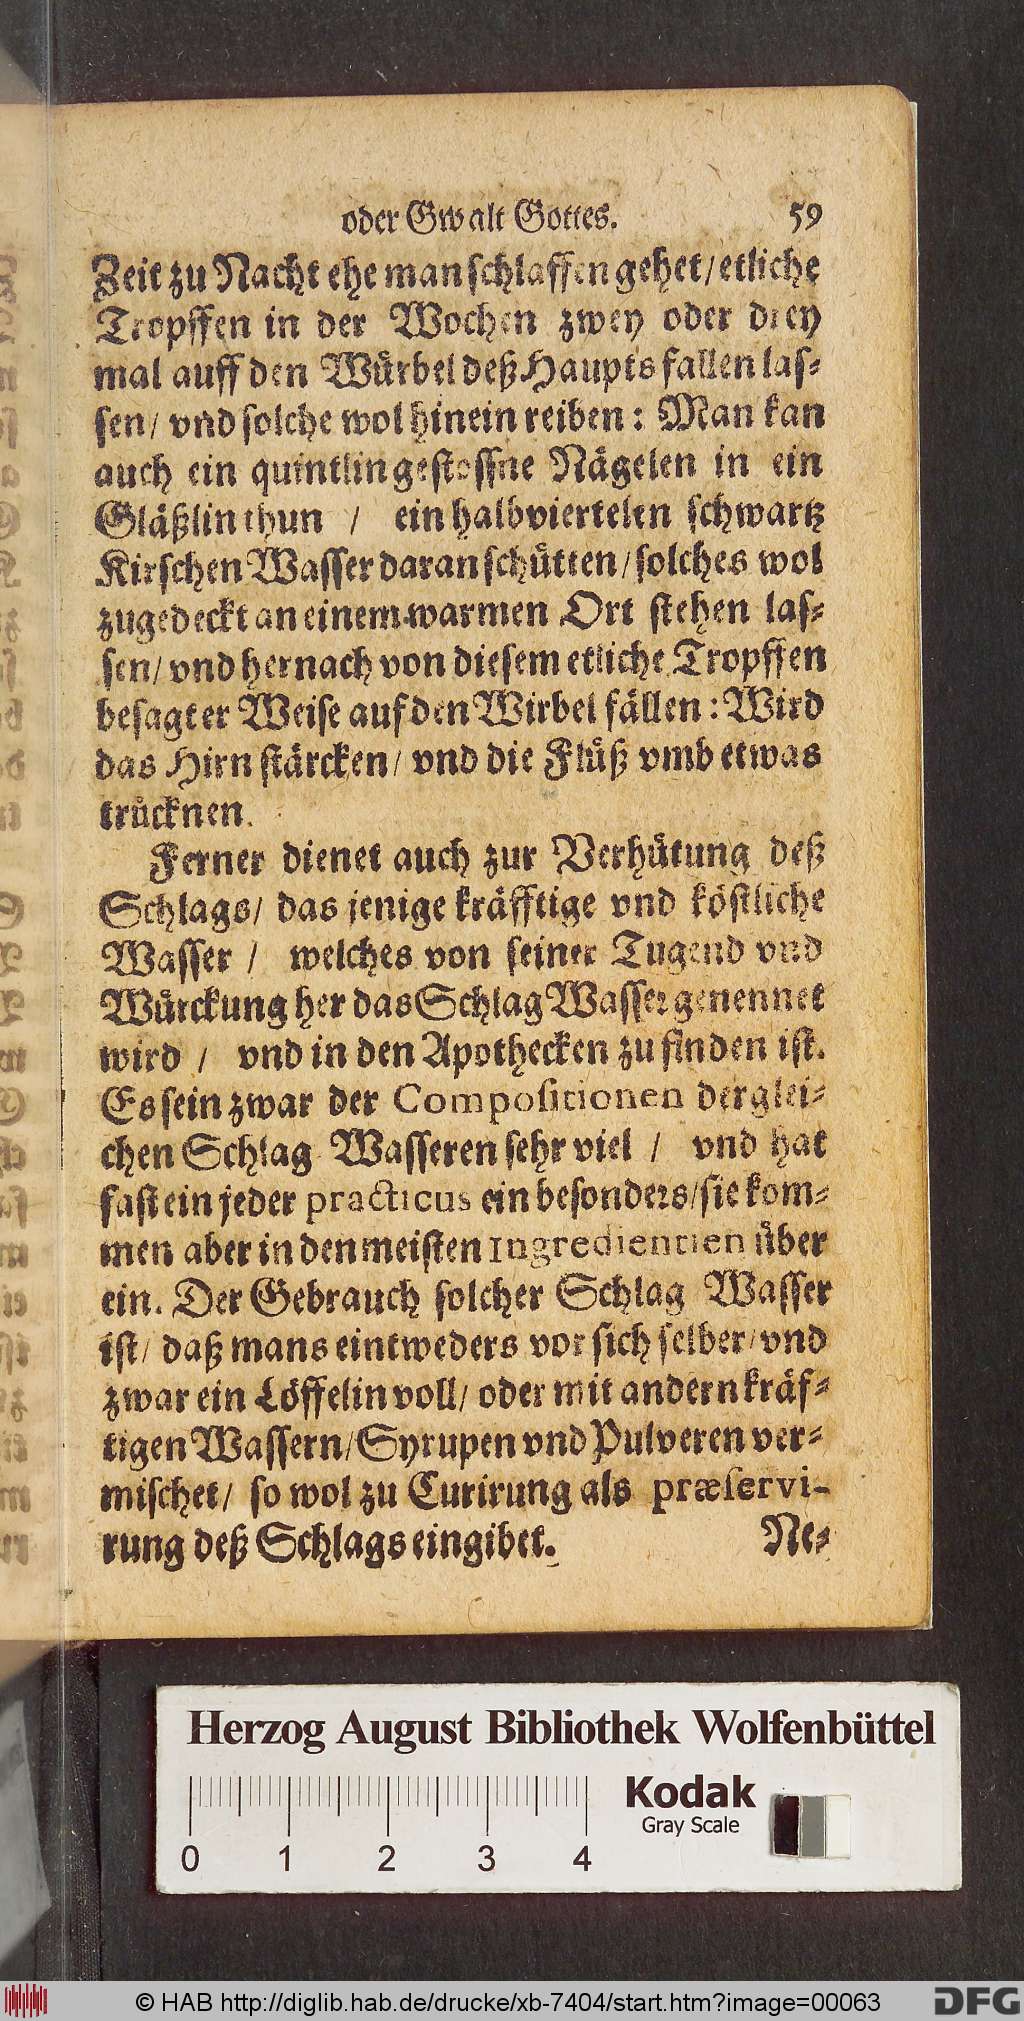 oder Gwalt Gottes. 59
Zeit zu Nacht ehe man schlaffen gehet/ etliche
Tropffen in der Wochen zwey oder drey
mal auff den Würbel deß Haupts fallen las-
sen/ vnd solche wol hinein reiben: Man kan
auch ein quintlin gestossne Nägelen in ein
Gläßlin thun / ein halb viertelen schwartz
Kirschen Wasser daran schütten/ solches wol
zugedeckt an einem warmen Ort stehen las-
sen/ vnd hernach von diesem etliche Tropffen
besagter Weise auf den Wirbel fällen: Wird
das Hirn stärcken/ vnd die Flüß vmb etwas
trücknen.
Ferner dienet auch zur Verhütung deß
Schlags/ das jenige kräfftige vnd köstliche
Wasser / welches von seiner Tugend vnd
Würckung her das Schlag Wasser genennet
wird / vnd in den Apothecken zu finden ist.
Es sein zwar der Compositionen derglei-
chen Schlag Wasseren sehr viel / vnd hat
fast ein jeder practicus ein besonders/ sie kom-
men aber in den meisten Ingredientien über
ein. Der Gebrauch solcher Schlag Wasser
ist/ daß mans eintweders vor sich selber/ vnd
zwar ein Löffelin voll/ oder mit andern kräf-
tigen Wassern/ Syrupen vnd Pulveren ver-
mischet/ so wol zu Curirung als præservi-
rung deß Schlags eingibet. Ne-
Herzog August Bibliothek Wolfenbüttel
Kodak
Gray Scale
0 1 2 3 4
© HAB http://diglib.hab.de/drucke/xb-7404/start.htm?image=00063
DFG